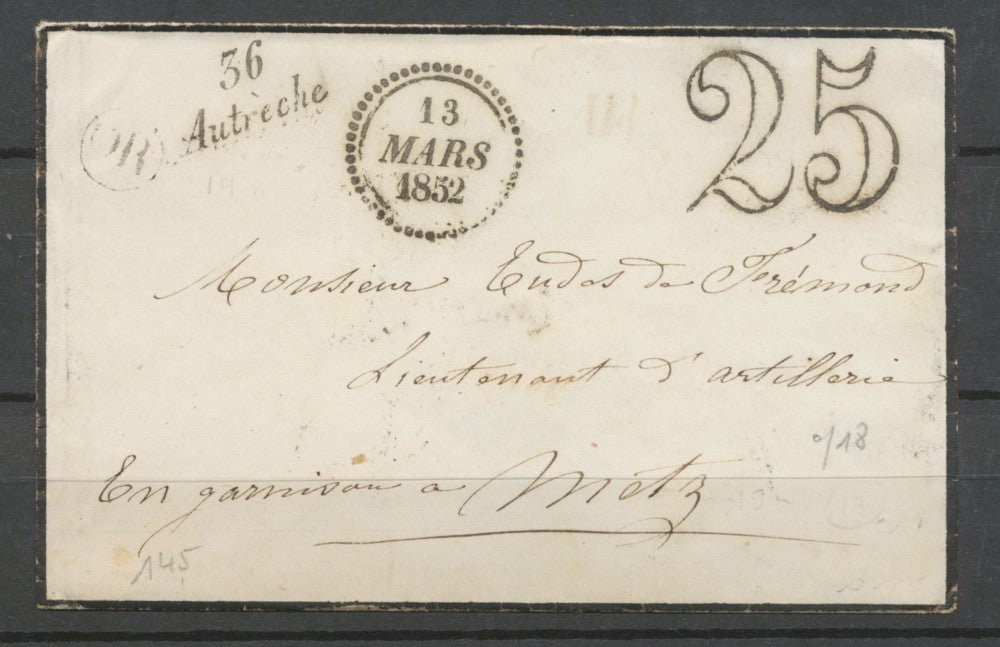 36
Autrèche
13
MARS
1852
25
Monsieur Eudes de Frémond
Lieutenant d'artillerie
En garnison a Metz
145